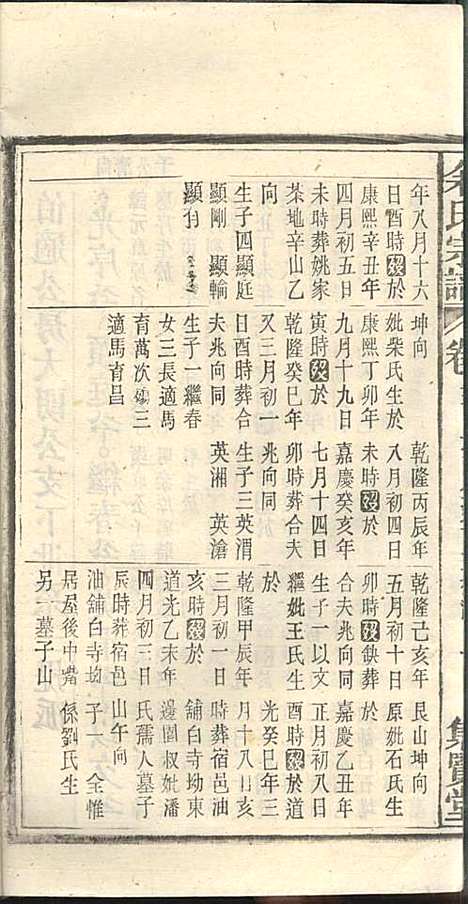 余氏宗譜 卷
集賢堂
年八月十六
日酉時歿於
康熙辛丑年
四月初五日
未時葬姚家
茶地辛山乙
向
生子四顯庭
顯剛 顯輸
顯
坤向
妣柴氏生於
康熙丁卯年
九月十九日
寅時歿於
乾隆癸巳年
又三月初一
日酉時葬合
夫兆向同
生子一繼春
女三長適馬
育萬次殤三
適馬育昌
乾隆丙辰年
八月初四日
未時歿於
嘉慶癸亥年
七月十四日
卯時葬合夫
兆向同
生子三英渭
英湘 英滄
乾隆己亥年
五月初十日
卯時歿缺葬
合夫兆向同
生子一以文
繼妣王氏生
於
乾隆甲辰年
三月初一日
亥時歿於
道光乙未年
四月初三日
辰時葬宿邑
油舖白寺坳
居屋後中嘴
另一墓子山
艮山坤向
原妣石氏生
於
嘉慶乙丑年
正月初八日
酉時歿於道
光癸巳年三
月十八日亥
時葬宿邑油
舖白寺坳東
邊園叔妣潘
氏孺人墓子
山午向
子一 全惟
係劉氏生